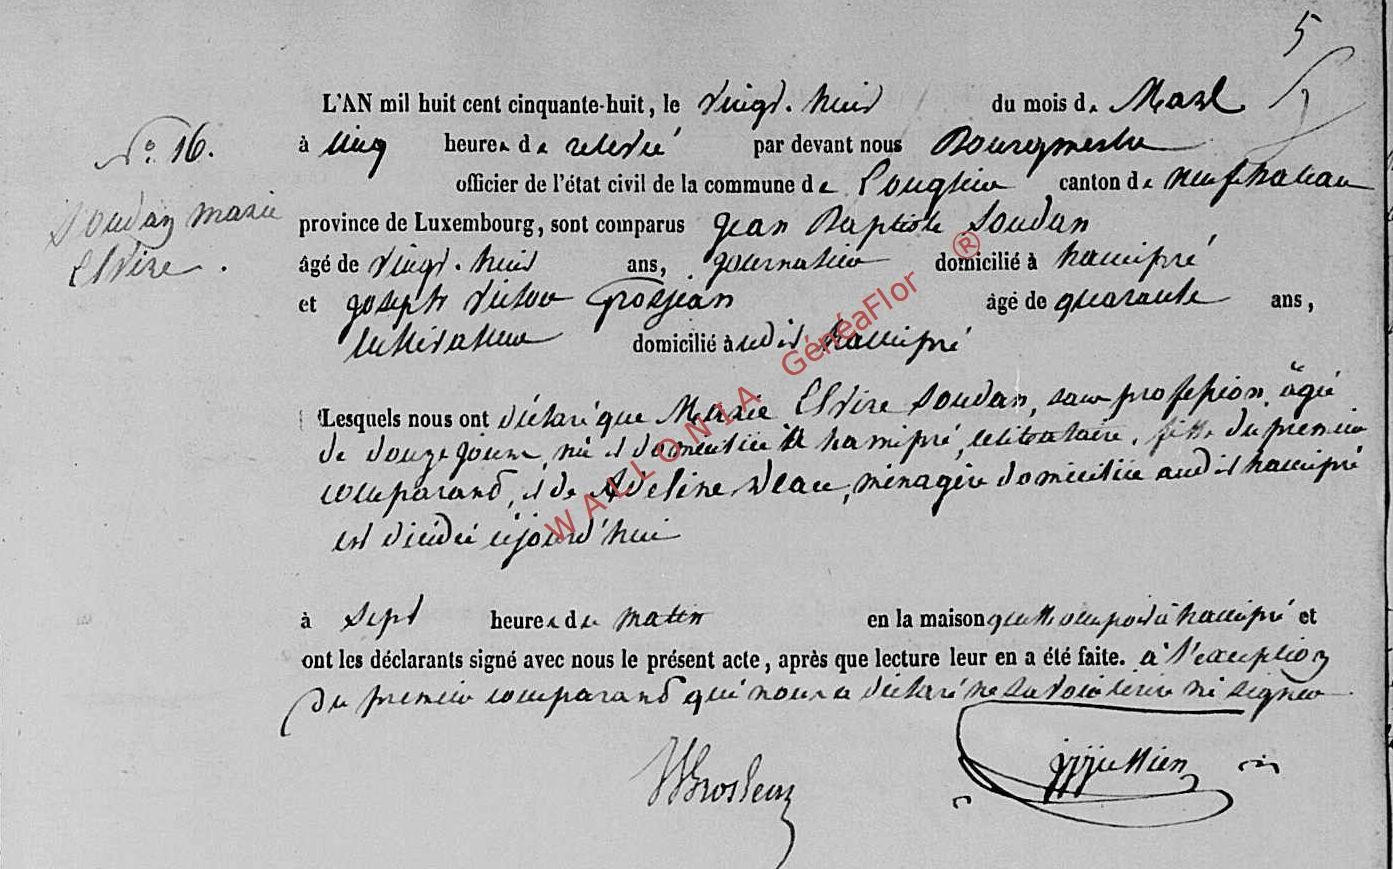 5
L'AN mil huit cent cinquante-huit, le vingt-huit du mois de Mars
N° 16.
à cinq heures de relevée par devant nous Bourgmestre
officier de l'état civil de la commune de Longlier canton de neufchateau
Soudan marie
province de Luxembourg, sont comparus jean Baptiste Soudan
Elvire.
âgé de vingt-huit ans, journalier domicilié à hamipré
et joseph victor Grosjean âgé de quarante ans,
cultivateur domicilié à udit hamipré
Lesquels nous ont déclaré que Marie Elvire Soudan, sans profession, âgée
de douze jours, née et domiciliée à hamipré, célibataire, fille du premier
comparand, et de Adeline, ménagère domiciliée audit hamipré
est décédée cejourd'hui
à sept heures du matin en la maison qu'elle occupoit à hamipré et
ont les déclarants signé avec nous le présent acte, après que lecture leur en a été faite. à l'exception
du premier comparand qui nous a déclaré ne savoir écrire ni signer
VGrosjean
WALLONIA GénéaFlor ®